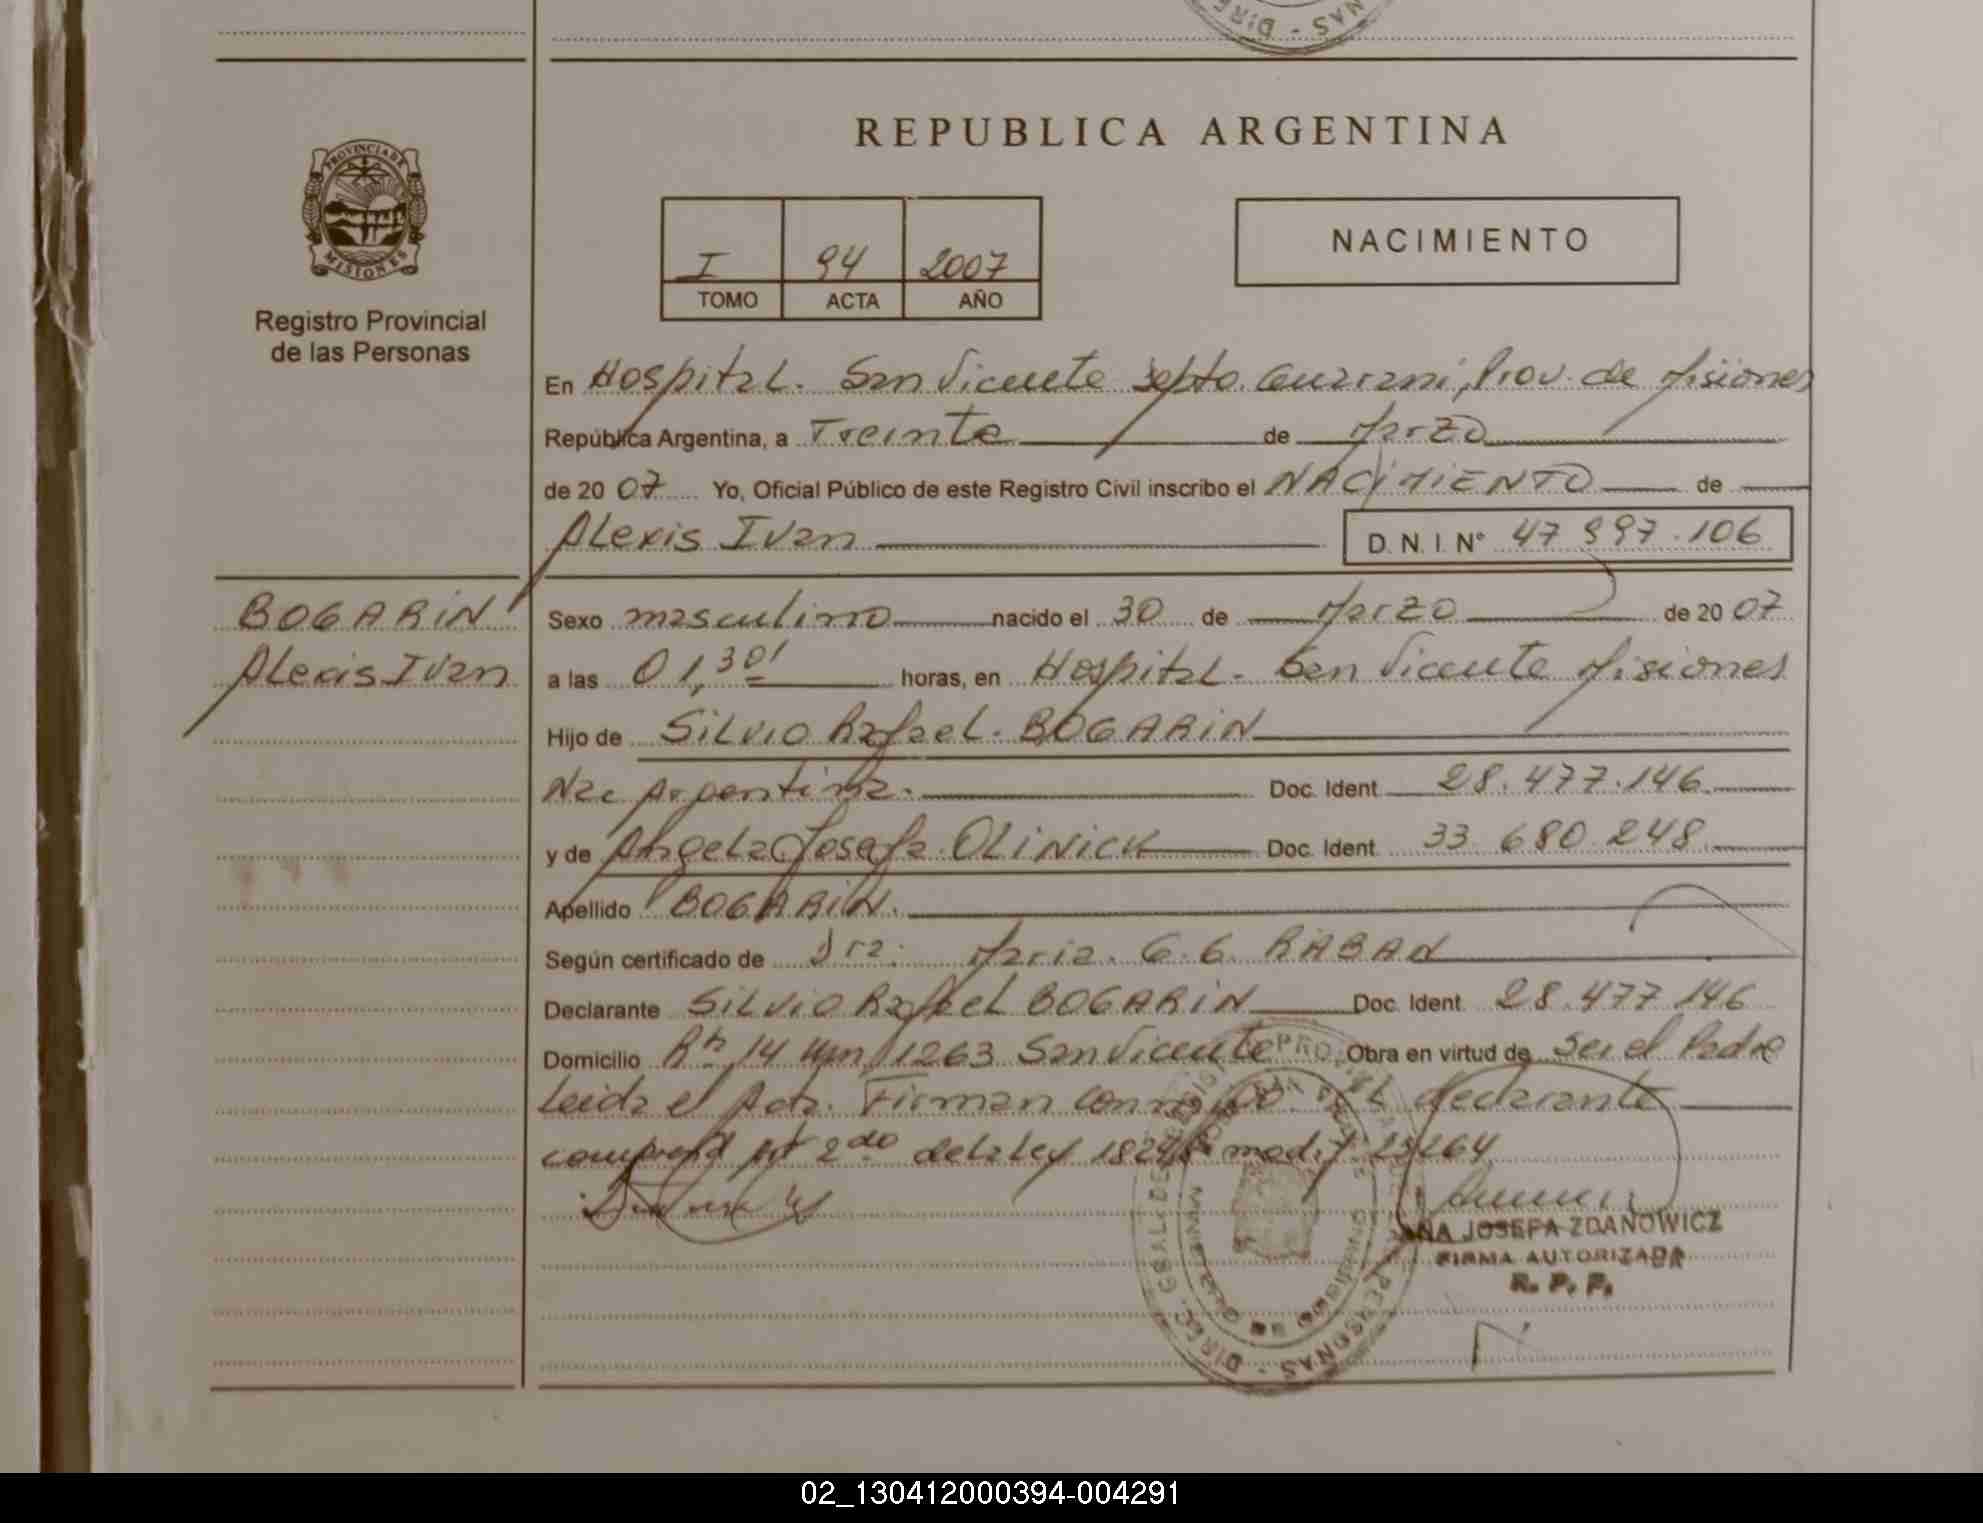 REPUBLICA ARGENTINA
PROVINCIA DE
MISIONES
Registro Provincial
de las Personas
I 94 2007
TOMO ACTA AÑO
NACIMIENTO
En Hospital. San Vicente Depto. Guarani, Prov. de Misiones
República Argentina, a Treinta de Marzo
de 20 07 Yo, Oficial Público de este Registro Civil inscribo el NACIMIENTO de
Alexis Ivan D. N. I. N° 47 997.106
BOGARIN
Alexis Ivan
Sexo masculino nacido el 30 de Marzo de 20 07
a las 01,30' horas, en Hospital - San Vicente Misiones
Hijo de Silvio Rafael. BOGARIN
Nac Argentina. Doc. Ident. 28.477.146
y de Angela Josefa OLINICK Doc. Ident. 33 680.248
Apellido BOGARIN.
Según certificado de Dra. Maria. G. G. RABAN
Declarante Silvio Rafael BOGARIN Doc. Ident. 28.477 146
Domicilio 14 Km 1263 San Vicente Obra en virtud de ser el Padre
Leida el Acta. Firman conmigo el declarante
2do de la Ley modif.
ANA JOSEFA ZDANOWICZ
FIRMA AUTORIZADA
R. P. P.
02_130412000394-004291